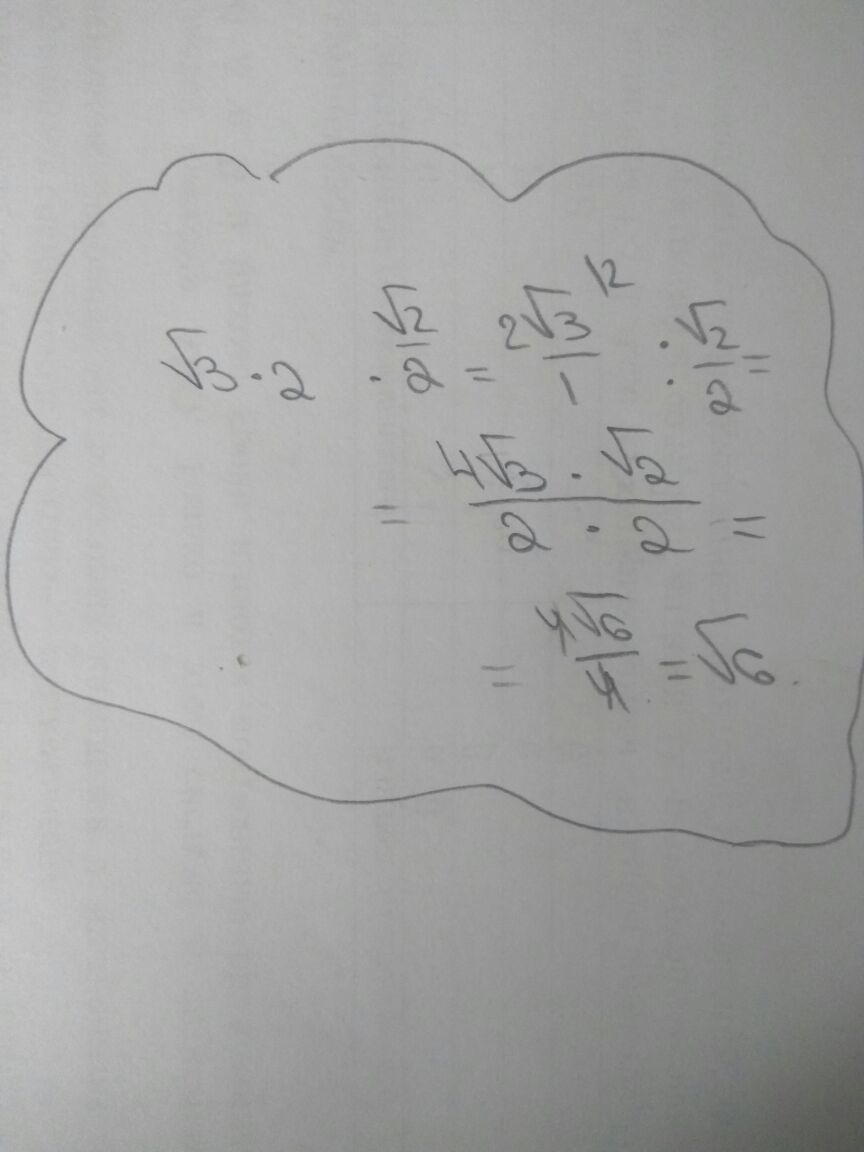 √3 · 2 · √2/2 = 2√3/1 \2 : √2/2 =
= 4√3 · √2 / 2 · 2 =
= 4√6/4 = √6.